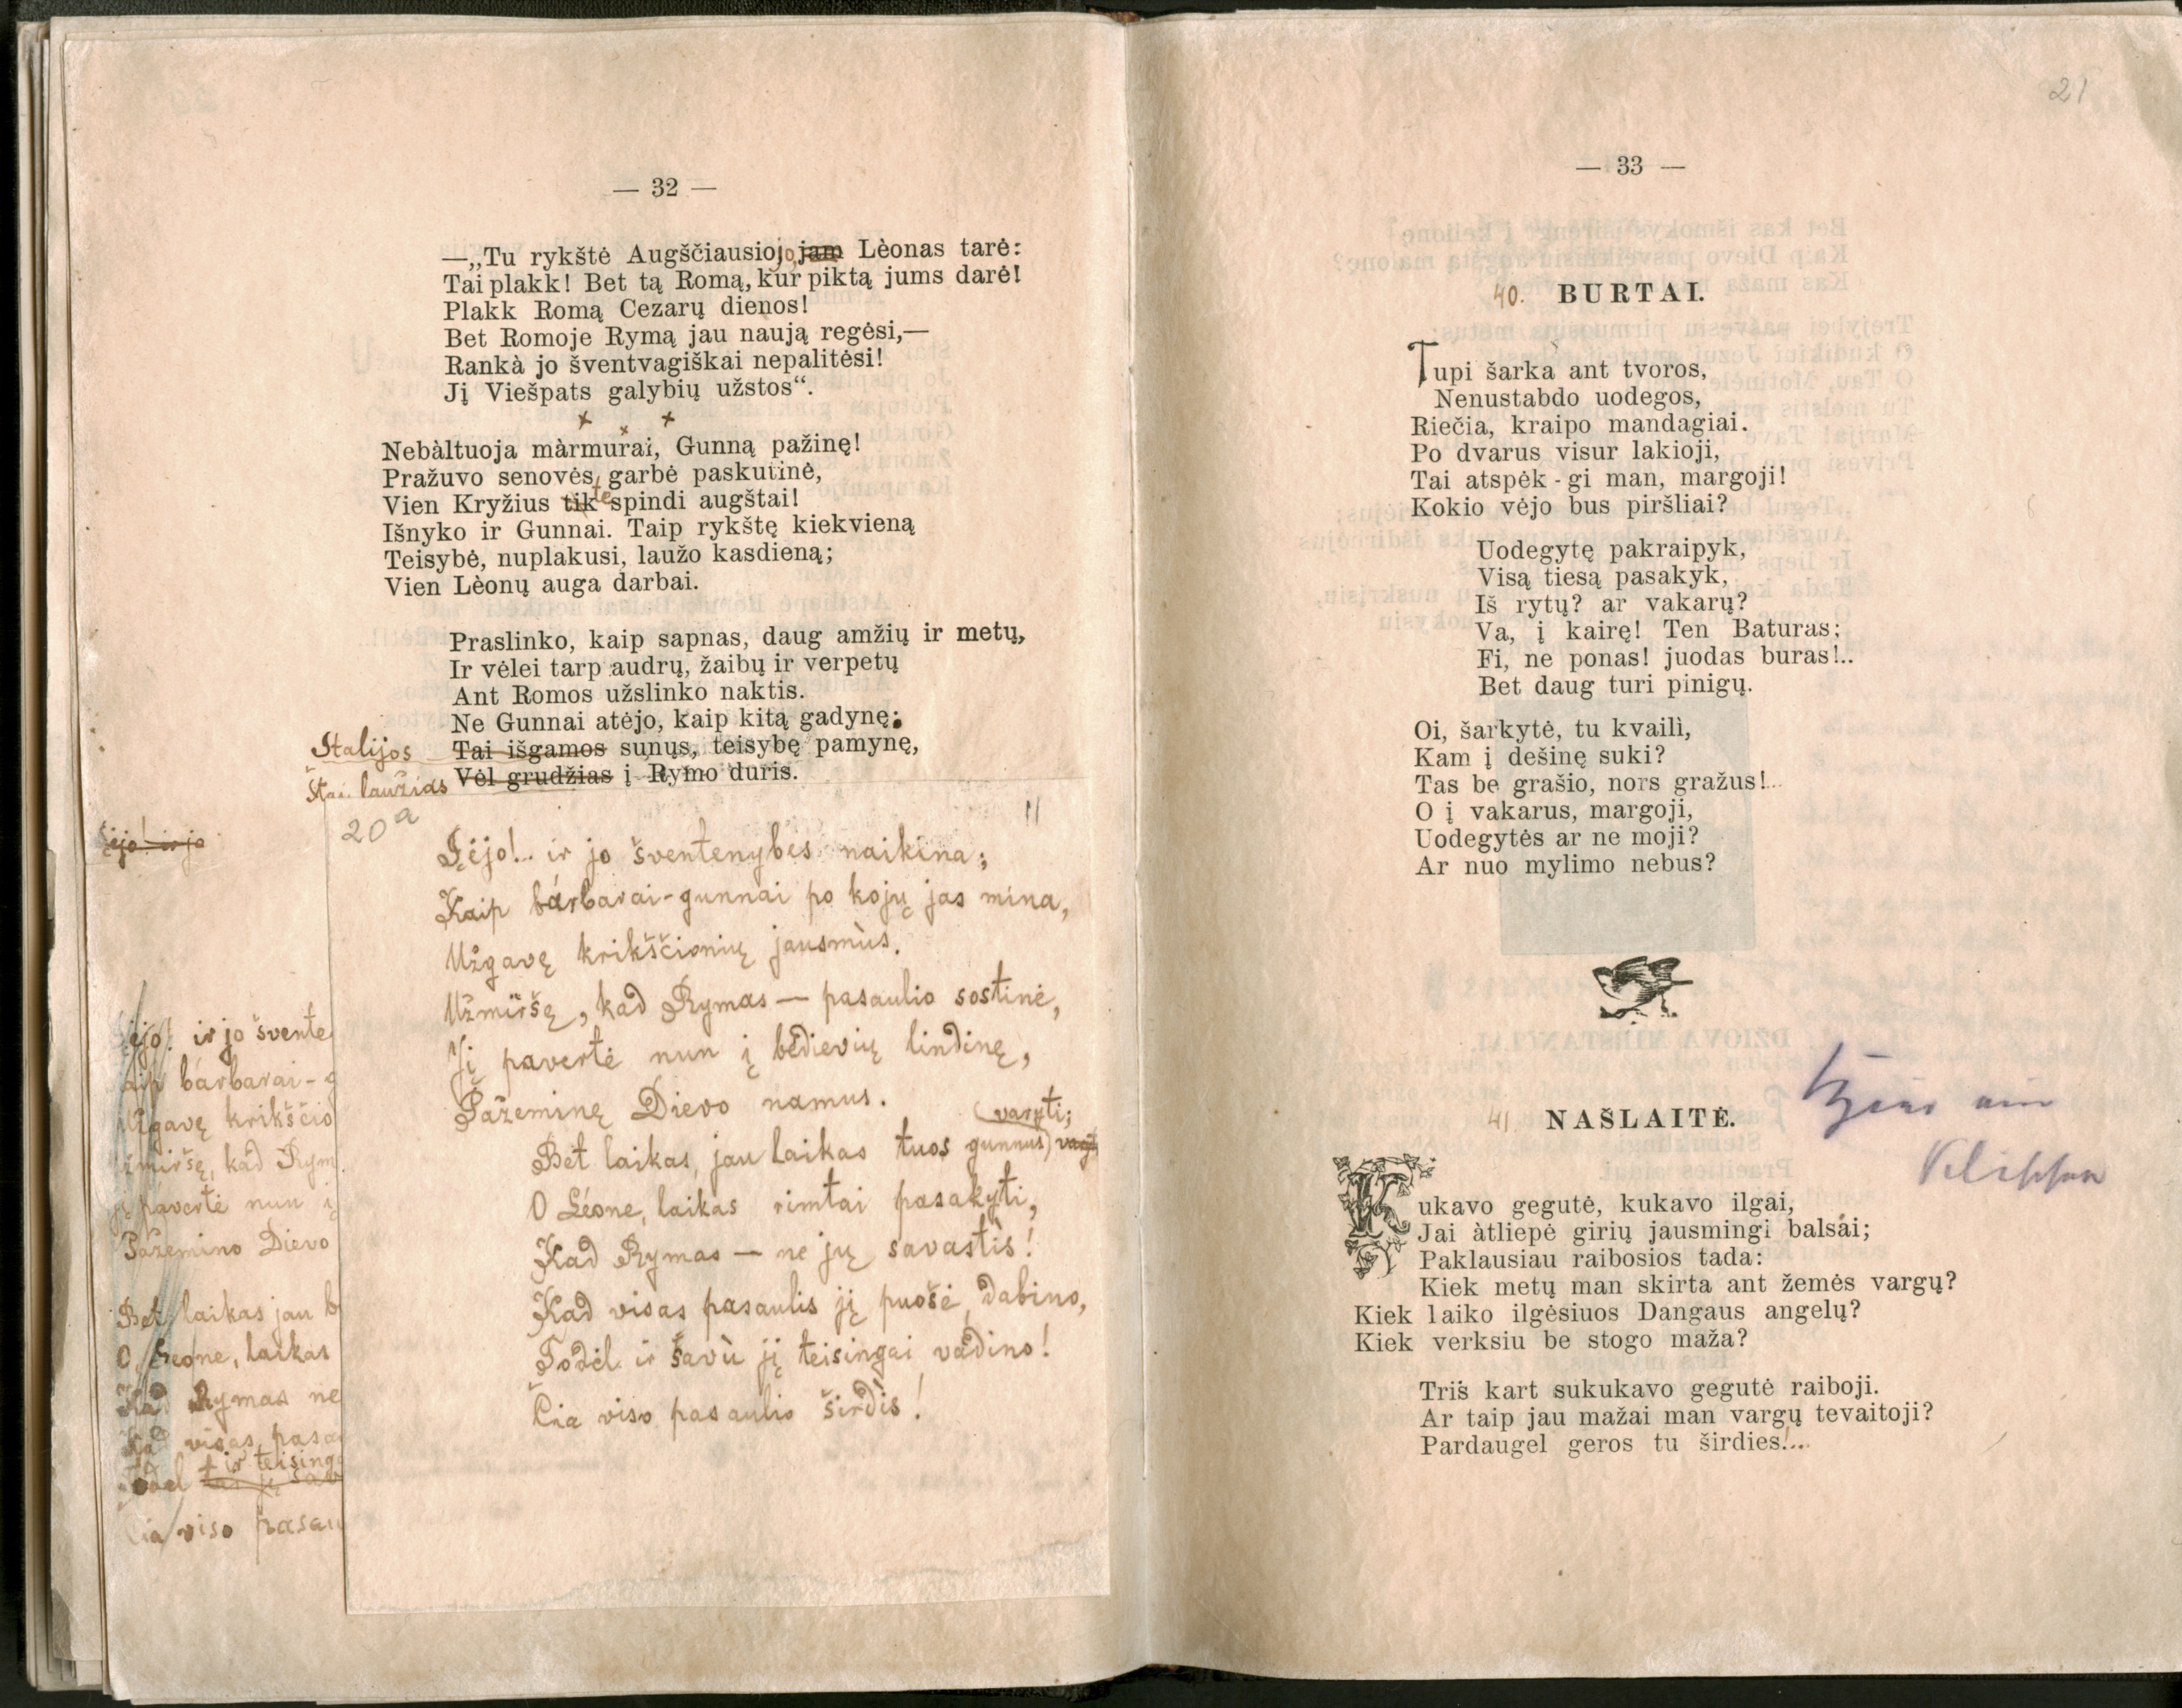 — 32 —
—„Tu rykštė Augščiausiojo, jam Lėonas tarė:
Tai plakk! Bet tą Romą, kur piktą jums darė!
Plakk Romą Cezarų dienos!
Bet Romoje Rymą jau naują regėsi,—
Rankà jo šventvagiškai nepalitėsi!
Jį Viešpats galybių užstos“.
x x x
Nebàltuoja màrmurai, Gunną pažinę!
Pražuvo senovės garbė paskutinė,
Vien Kryžius tik te spindi augštai!
Išnyko ir Gunnai. Taip rykštę kiekvieną
Teisybė, nuplakusi, laužo kasdieną;
Vien Lėonų auga darbai.
Praslinko, kaip sapnas, daug amžių ir metų,
Ir vėlei tarp audrų, žaibų ir verpetų
Ant Romos užslinko naktis.
Ne Gunnai atėjo, kaip kitą gadynę;
Italijos Tai išgamos sunųs, teisybę pamynę,
Štai laužias Vėl grudžias į Rymo duris.
20a
11
Įėjo!.. ir jo šventenybes naikina;
Kaip bárbarai-gunnai po kojų jas mina,
Užgavę krikščionių jausmùs.
Užmiršę, kad Rymas — pasaulio sostinė,
Jį pavertė nun į bedievių lindinę,
Pažeminę Dievo namus.
varyti;
Bet laikas, jau laikas tuos gunnus
O Léone, laikas rimtai pasakyti,
Kad Rymas — ne jų savastis!
Kad visas pasaulis jį puošė, dabino,
Todėl ir savù jį teisingai vadino!
Čia viso pasaulio širdis!
įėjo! ir jo
įėjo! ir jo švente
aip bárbarai-g
Užgavę krikščio
žmiršę, kad Rym
jį pavertė nun į
Pažemino Dievo
Bet laikas jau
O Leone, laikas
Kad Rymas ne
Kad visas pasa
ir teising
Todėl
Čia viso pasau
21
— 33 —
40. BURTAI.
Tupi šarka ant tvoros,
Nenustabdo uodegos,
Riečia, kraipo mandagiai.
Po dvarus visur lakioji,
Tai atspėk-gi man, margoji!
Kokio vėjo bus piršliai?
Uodegytę pakraipyk,
Visą tiesą pasakyk,
Iš rytų? ar vakarų?
Va, į kairę! Ten Baturas;
Fi, ne ponas! juodas buras!..
Bet daug turi pinigų.
Oi, šarkytė, tu kvailì,
Kam į dešinę suki?
Tas be grašio, nors gražus!...
O į vakarus, margoji,
Uodegytės ar ne moji?
Ar nuo mylimo nebus?
41. NAŠLAITĖ.
Kukavo gegutė, kukavo ilgai,
Jai àtliepė girių jausmingi balsái;
Paklausiau raibosios tada:
Kiek metų man skirta ant žemės vargų?
Kiek laiko ilgėsiuos Dangaus angelų?
Kiek verksiu be stogo maža?
Tris kart sukukavo gegutė raiboji.
Ar taip jau mažai man vargų tevaitoji?
Pardaugel geros tu širdies!...